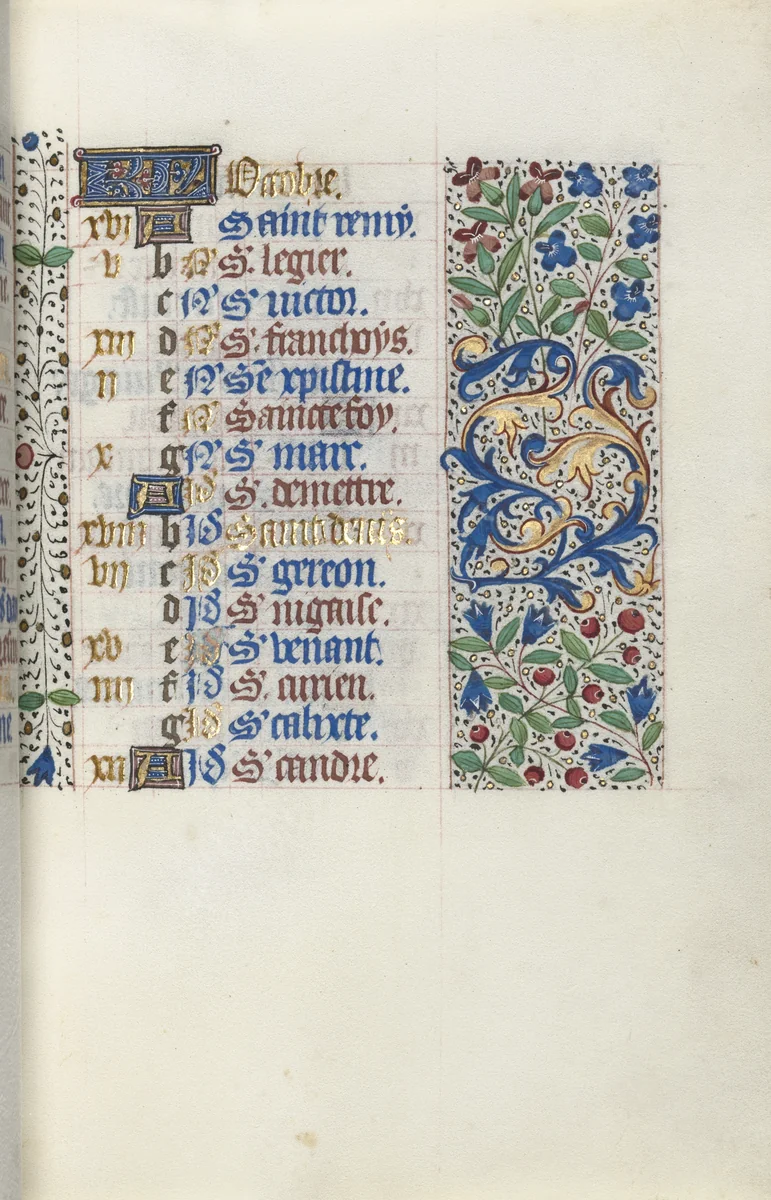 KL Octobre.
xvi A Saint remy.
v b N S. legier.
c N S' victor.
xiii d N S. franchoys.
ii e N Se xpistine.
f N Saincte foy.
x g N S' marc.
A Id S. demettre.
xviii b Id Saint denis.
vii c Id S' gereon.
d Id S' nigaise.
xv e Id S' venant.
iiii f Id S. curien.
g Id S' calixte.
xii A Id S' candre.